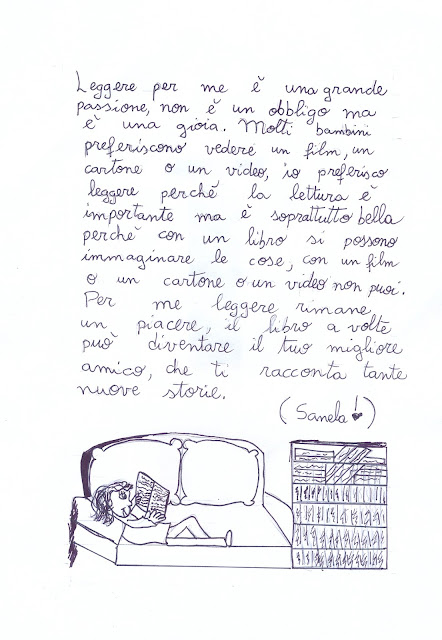 Leggere per me è una grande
passione, non è un obbligo ma
è una gioia. Molti bambini
preferiscono vedere un film, un
cartone o un video, io preferisco
leggere perché la lettura è
importante ma è soprattutto bella
perché con un libro si possono
immaginare le cose, con un film
o un cartone o un video non puoi.
Per me leggere rimane
un piacere, il libro a volte
può diventare il tuo migliore
amico, che ti racconta tante
nuove storie.
(Sanela!)